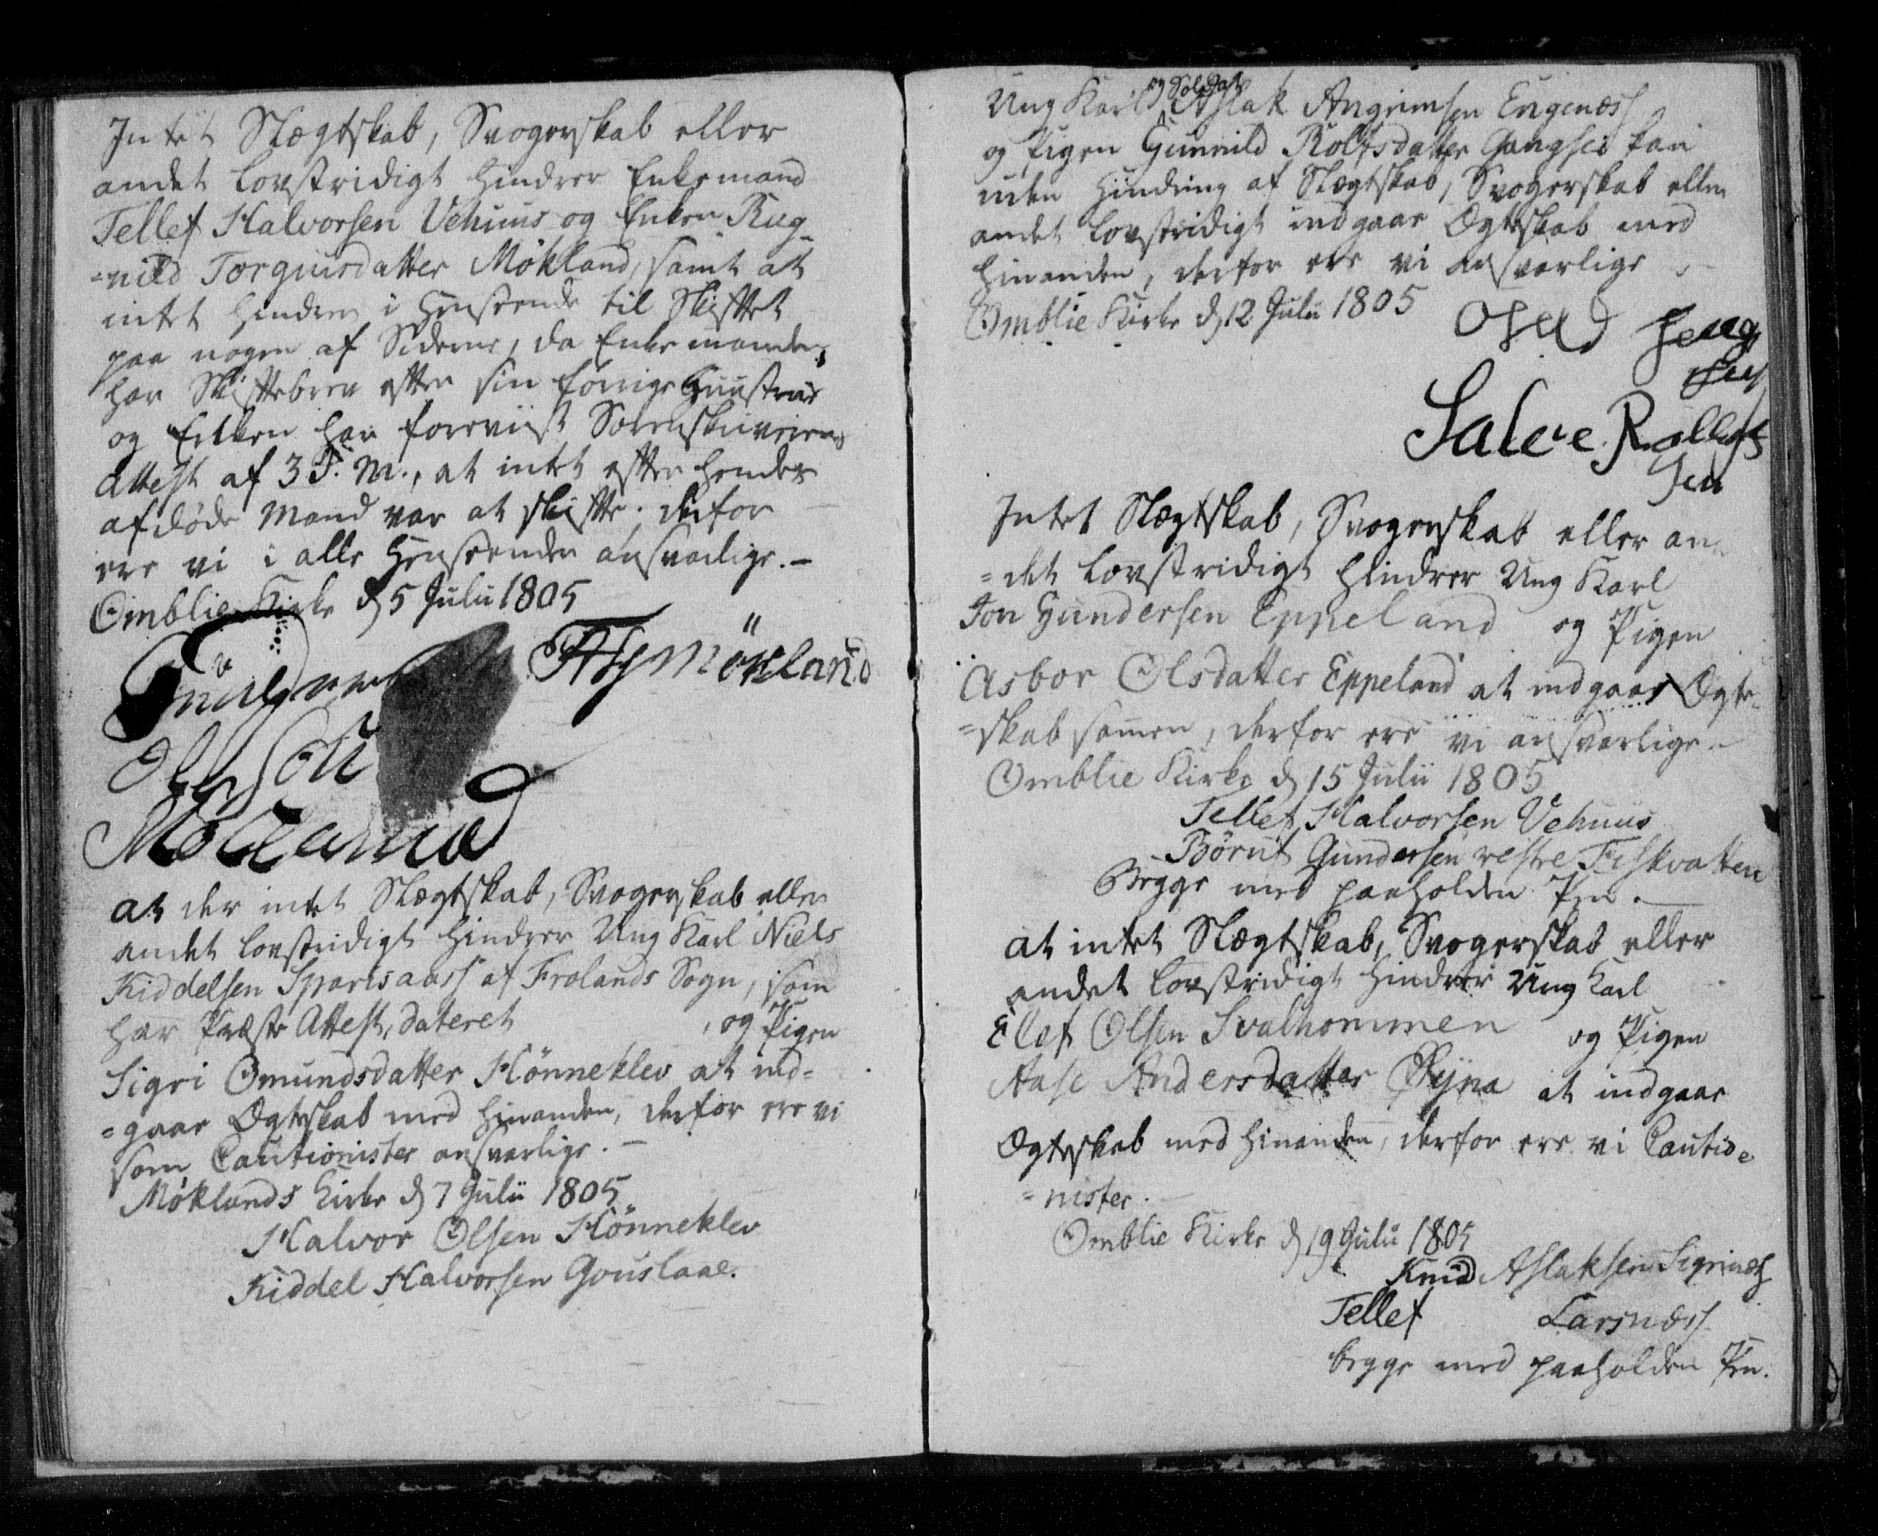 Intet Slægtskab, Svogerskab eller
andet Lovstridigt hindrer Enkemand
Tellef Halvorsen Vehuus og Enken Rag-
=nild Torgiusdatter Mökland, samt at
intet hindrer i Henseende til Skiftet
paa nogen af Siderne, da Enkemanden
har Skiftebrev efter sin forrige Huustrue
og Enken har foreviist Sorenskriverens
Attest af 3 J. M., at intet efter hendes
afdöde Mand var at skifte; derfor
ere vi i alle Henseender ansvarlige.-
Omblie Kirke d 5 Julii 1805
Mökland
Olesön
Mökland
At der intet Slægtskab, Svogerskab eller
andet Lovstridigt hindrer Ung Karl Niels
Kiddelsen Sparsaas af Frolands Sogn, som
har Præste Attest, dateret , og Pigen
Sigri Omundsdatter Hönneklev at ind-
=gaae Ægteskab med hinanden, derfor ere vi
som Cautionister ansvarlige.-
Möklands Kirke d 7 Julii 1805
Halvor Olsen Hönneklev
Kiddel Halvorsen Gouslaae.
og Soldat
Ung Karl Aslak Angrimsen Engenæss
og Pigen Gunnild Rolfsdatter Gangsei kan
uden Hindring af Slægtskab, Svogerskab eller
andet Lovstridigt indgaae Ægteskab med
hinanden, derfor ere vi ansvarlige
Omblie Kirke d 12 Julii 1805
Salve Rollefs
Sen
Intet Slægtskab, Svogerskab eller an-
=det Lovstridigt hindrer Ung Karl
Jon Gundersen Eppeland og Pigen
Asbor Olsdatter Eppeland at indgaae Ægte-
=skab samen, derfor ere vi ansvarlige.-
Omblie Kirke d 15 Julii 1805
Tellef Halvorsen Vehuus
Börut Gundersen vestre Fiskvatten
Begge med paaholden Pen.
At intet Slægtskab, Svogerskab eller
andet Lovstridigt hindrer Ung Karl
Elef Olsen Svalhommen og Pigen
Aase Andersdatter Öyna at indgaae
Ægteskab med hinanden, derfor ere vi Cautio-
=nister.
Omblie Kirke d 19 Julii 1805
Knud Aslaksen Sigrinæs
Tellef Larsnæss
begge med paaholden Pen.